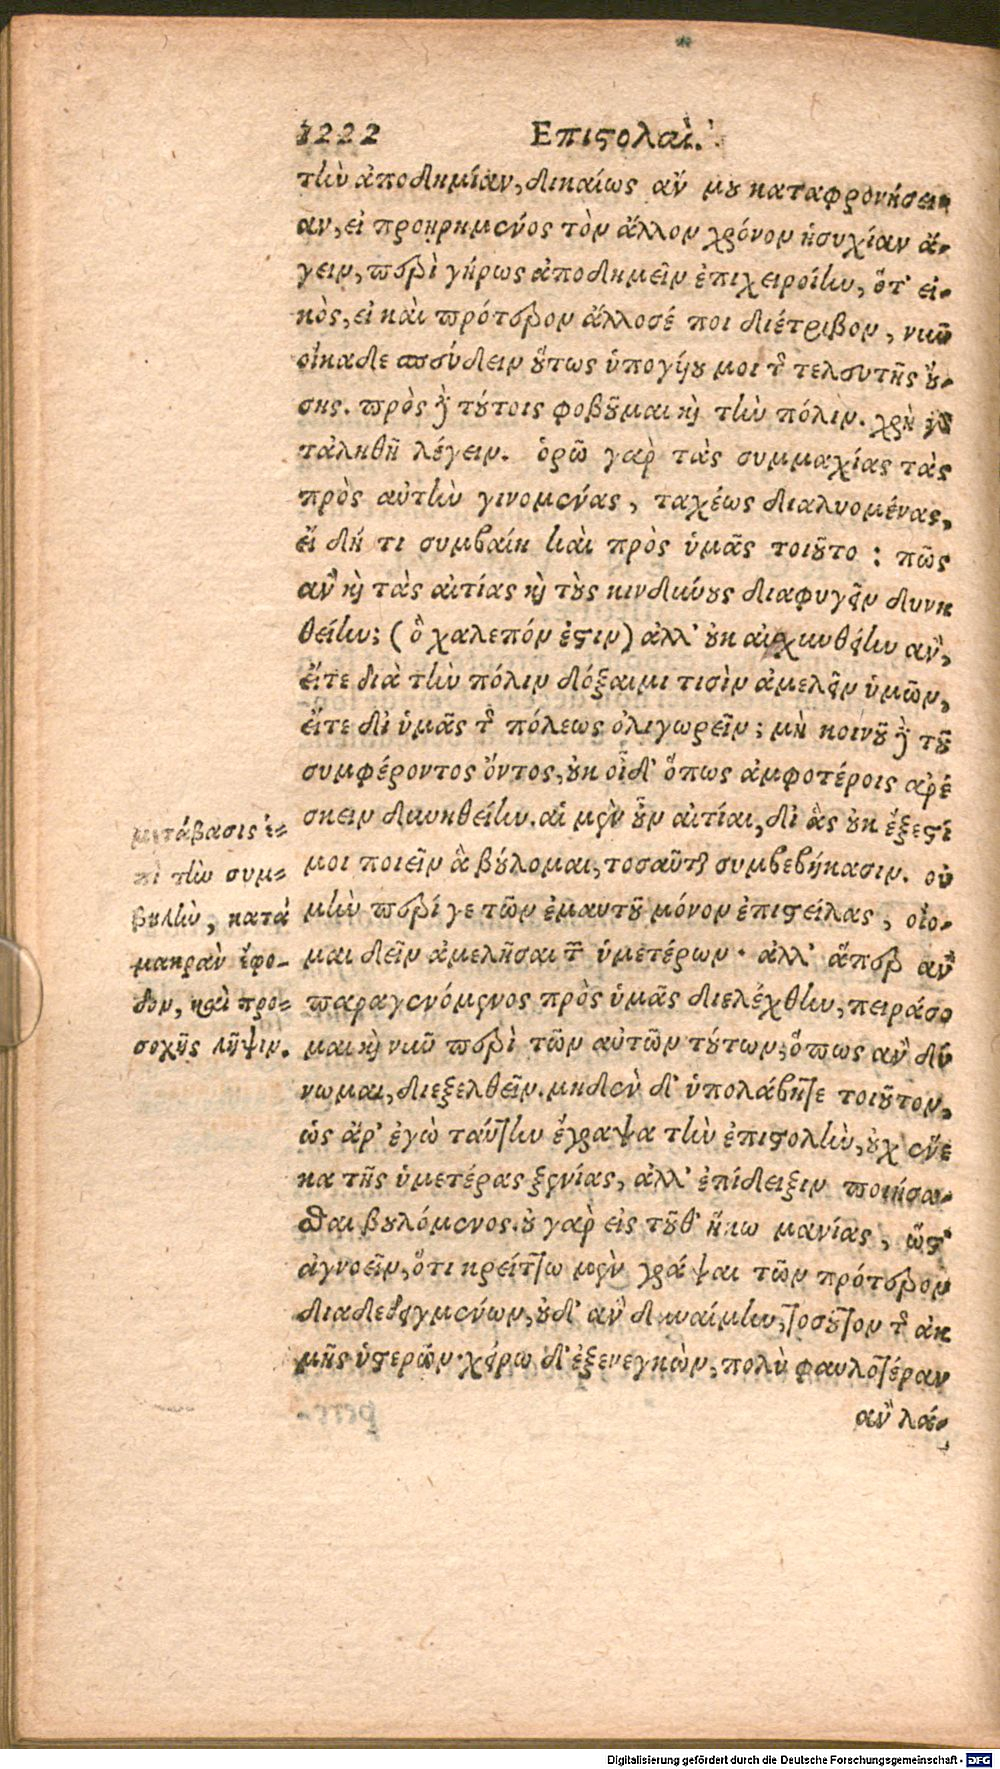 1222 Επιστολαί.
τὴν ἀποδημίαν, δικαίως ἄν μου καταφρονήσει-
αν, εἰ προῃρημένος τὸν ἄλλον χρόνον ἡσυχίαν ἄ-
γειν, περὶ γήρως ἀποδημεῖν ἐπιχειροίην, ὅτ' εἰ-
κὸς, εἰ καὶ πρότερον ἄλλοσέ ποι διέτριβον, νῦν
οἴκαδε σπεύδειν οὕτως ὑπογύου μοι τῆς τελευτῆς οὔ-
σης. πρὸς δὲ τούτοις φοβοῦμαι καὶ τὴν πόλιν. χρὴ γὰρ
τἀληθῆ λέγειν. ὁρῶ γὰρ τὰς συμμαχίας τὰς
πρὸς αὐτὴν γινομένας, ταχέως διαλυομένας,
εἰ δή τι συμβαίη καὶ πρὸς ὑμᾶς τοιοῦτο: πῶς
ἂν καὶ τὰς αἰτίας καὶ τοὺς κινδύνους διαφυγεῖν δυνη
θείην; (ὃ χαλεπόν ἐστιν) ἀλλ' οὐκ αἰσχυνθείην ἂν,
εἴτε διὰ τὴν πόλιν δόξαιμι τισὶν ἀμελεῖν ὑμῶν,
εἴτε δι' ὑμᾶς τῆς πόλεως ὀλιγωρεῖν; μὴ κοινοῦ δὲ τοῦ
συμφέροντος ὄντος, οὐκ οἶδ' ὅπως ἀμφοτέροις ἀρέ
σκειν δυνηθείην. αἱ μὲν οὖν αἰτίαι, δι' ἃς οὐκ ἔξεστί
μοι ποιεῖν ἃ βούλομαι, τοσαῦται συμβεβήκασιν. οὐ
μὴν περί γε τῶν ἐμαυτοῦ μόνον ἐπιστείλας, οἴο-
μαι δεῖν ἀμελῆσαι τῶν ὑμετέρων· ἀλλ' ἅπερ ἂν
παραγενόμενος πρὸς ὑμᾶς διελέχθην, πειράσο
μαι καὶ νῦν περὶ τῶν αὐτῶν τούτων, ὅπως ἂν δύ
νωμαι, διεξελθεῖν. μηδὲν δ' ὑπολάβητε τοιοῦτον,
ὡς ἄρ' ἐγὼ ταύτην ἔγραψα τὴν ἐπιστολὴν, οὐχ ἕνε
κα τῆς ὑμετέρας ξενίας, ἀλλ' ἐπίδειξιν ποιήσα-
σθαι βουλόμενος. οὐ γὰρ εἰς τοῦθ' ἥκω μανίας, ὥστ'
ἀγνοεῖν, ὅτι κρείττω μὲν γράψαι τῶν πρότερον
διαδεδειγμένων, οὐδ' ἂν δυναίμην, τοσοῦτον τῆς ἀκ
μῆς ὑστερῶν· χείρω δ' ἐξενεγκὼν, πολὺ φαυλοτέραν
ἂν λά-
μετάβασις ἐ-
πὶ τὴν συμ-
βουλὴν, κατὰ
μακρὰν ἔφο-
δον, καὶ προ-
σοχῆς λῆψιν.
Digitalisierung gefördert durch die Deutsche Forschungsgemeinschaft - DFG